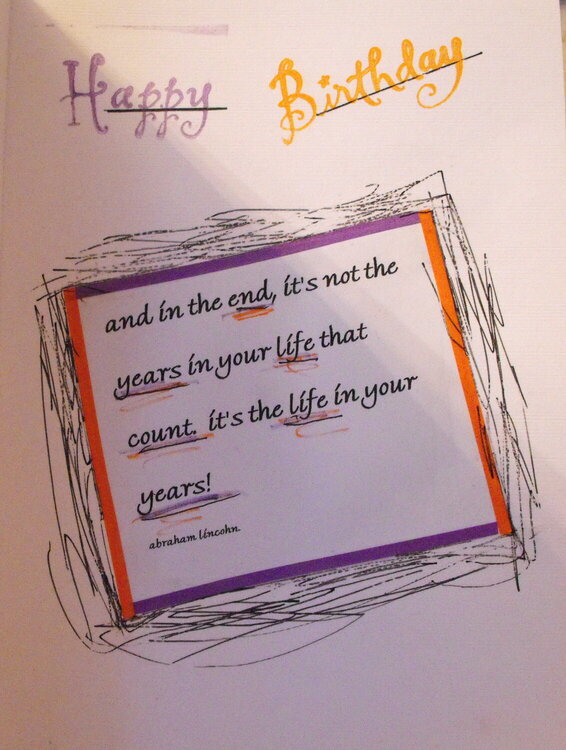 Happy Birthday
and in the end, it's not the
years in your life that
count. it's the life in your
years!
abraham lincohn.